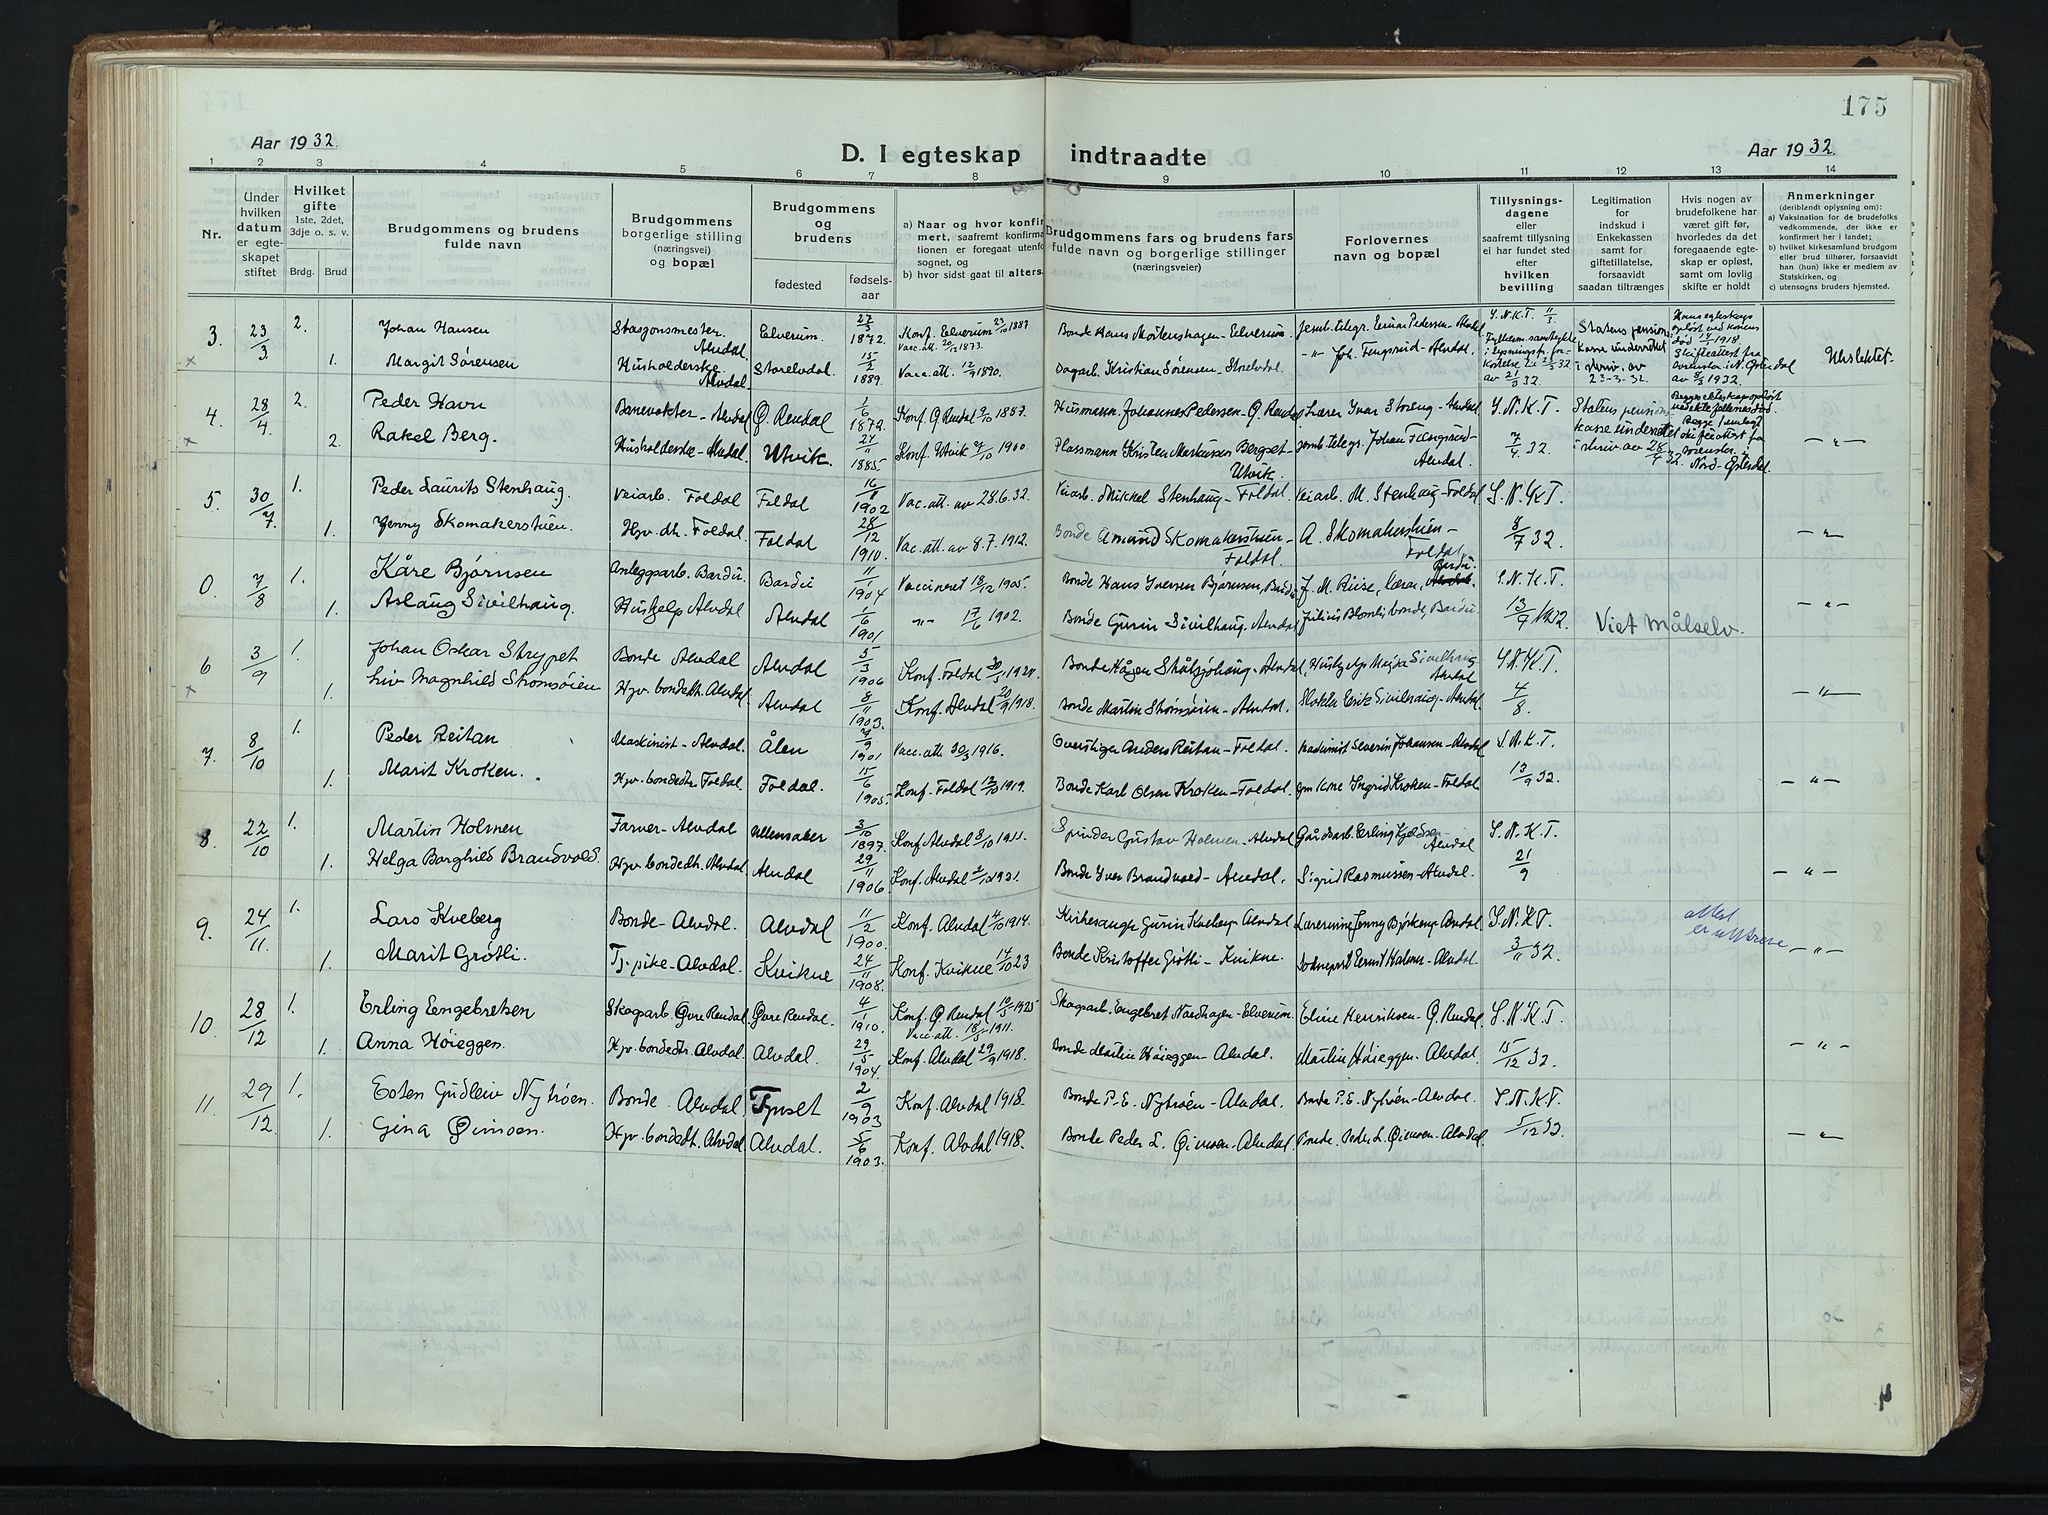 175
Aar 1932.
D. I egteskap indtraadte
Aar 1932.
1 2 3 4 5 6 7 8 9 10 11 12 13 14
Nr.
Under hvilken datum er egteskapet stiftet
Hvilket gifte
1ste, 2det, 3dje o. s. v.
Brdg. Brud
Brudgommens og brudens fulde navn
Brudgommens borgerlige stilling (næringsvei) og bopæl
Brudgommens og brudens
fødested
fødsels-aar
a) Naar og hvor konfirmert, saafremt konfirmationen er foregaat utenfor sognet, og
b) hvor sidst gaat til alters.
Brudgommens fars og brudens fars fulde navn og borgerlige stillinger (næringsveier)
Forlovernes navn og bopæl
Tillysningsdagene eller saafremt tillysning ei har fundet sted efter hvilken bevilling
Legitimation for indskud i Enkekassen samt for giftetillatelse, forsaavidt saadan tiltrænges
Hvis nogen av brudefolkene har været gift før, hvorledes da det foregaaende egteskap er opløst, samt om lovlig skifte er holdt
Anmerkninger
(deriblandt oplysning om):
a) Vaksination for de brudefolks vedkommende, der ikke er konfirmert her i landet;
b) hvilket kirkesamfund brudgom eller brud tilhører, forsaavidt han (hun) ikke er medlem av Statskirken, og
c) utensogns bruders hjemsted.
3. 23/3 2. Johan Hansen Stasjonsmester Alvdal Elverum. 27/3 1872. Konf. Elverum 23/10 1887 Vacc. att. 20/12 1873. Bonde Hans Mortenshagen - Elverum. Jernb. telegr. Einar Pedersen - Alvdal S.N.K.T. 11/3
1. Margit Sørensen Husholderske Alvdal Storelvdal 15/2 1889. Vacc. att. 12/9 1890. Dagarb. Kristian Sørensen - Storelvdal. - " - Joh. Tengsrud - Alvdal. av 21/3 32. Statens pensjonskasse underrettet i skriv. av 23-3-32. Hans egteskap opløst ved konens død 14/4 1918. Skifteattest fra sorenskr. i N. Østerdal av 8/3 1932. Ubeslektet
4. 28/4 2. Peder Havn Banevokter - Alvdal Ø. Rendal 1/6 1872. Konf. Ø. Rendal 9/10 1887 Husmann Johannes Pedersen - Ø. Rendal Lærer Ivar Storeng - Alvdal S.N.K.T.
2. Rakel Berg. Husholderske - Alvdal Utvik. 24/11 1885. Konf. Utvik 7/10 1900. Plassmann Kristen Markussen Bergset - Utvik. Jernb. telegr. Johan Tengsrud - Alvdal. 7/4 32. Statens pensjonskasse underrettet i skriv. av 28/4 32. Begges ekteskap opløst ved ektefellenes død. Begge fremlagt skifteattest fra sorenskr. i Nord-Østerdal. - " -
5. 30/7 1. Peder Laurits Stenhaug. Veiarb. Foldal Foldal 16/8 1902 Vac. att. av 28.6.32. Veiarb. Mikkel Stenhaug - Foldal. Veiarb. M. Stenhaug - Foldal S.N.K.T.
1. Jenny Skomakerstuen. Hjv. dh. Foldal. Foldal 28/12 1910. Vac. att. av 8.7.1912. Bonde Amund Skomakerstuen - Foldal. A. Skomakerstuen - Foldal. 8/7 32. - " -
0. 7/8 1. Kåre Bjørnsen Anleggsarb. Bardu. Bardu 11/1 1904 Vaccineret 18/12 1905. Bonde Hans Iversen Bjørnsen, Bardu J. M. Ruise, Lærer, Bardu. S.N.K.T.
1. Aslaug Sivilhaug. Hushjelp Alvdal Alvdal 1/6 1901 - " - 17/6 1902. Bonde Gurin Sivilhaug. Alvdal Julius Blomli, bonde, Bardu 13/9 1932. Viet Målselv. - " -
6 3/9 1. Johan Oskar Strypet Bonde Alvdal Alvdal 5/3 1906 Konf. Foldal 30/5 1920. Bonde Hågen Skåltjøhaug - Alvdal, Hushjelp Maida Sivilhaug Alvdal S.N.K.T.
1. Liv Magnhild Strømsøien Hjv. bondedt. Alvdal Alvdal 8/11 1903. Konf. Alvdal 20/9 1918. Bonde Martin Strømsøien - Alvdal. Slakter Eirik Sivilhaug - Alvdal 4/8. - " -
7. 8/10 1. Peder Reitan Maskinist - Alvdal. Ålen 7/9 1901 Vacc. att. 30/3 1916. Overstiger Anders Reitan - Foldal. Maskinist Severin Johansen - Alvdal S.N.K.T.
1. Marit Kroken. Hjv. bondedtr. Foldal. Foldal. 15/6 1905. Konf. Foldal 12/10 1919. Bonde Karl Olsen Kroken - Foldal. Gm kone Ingrid Kroken - Foldal 13/9 32. - " -
8. 22/10 1. Martin Holmen Farver - Alvdal Ullensaker 3/10 1897. Konf. Alvdal 8/10 1911. Spinder Gustav Holmen. Alvdal Gårdsarb. Erling Kjeldsen - Alvdal S.N.K.T.
1. Helga Borghild Brandvold. Hjv. bondedtr. Alvdal. Alvdal 29/11 1906 Konf. Alvdal 2/10 1921. Bonde Iver Brandvold - Alvdal. Sigrid Rasmussen - Alvdal. 21/9 - " -
9. 24/11. 1. Lars Kveberg Bonde - Alvdal. Alvdal 11/2 1900. Konf. Alvdal 4/10 1914. Kirkesanger Gurin Kveberg - Alvdal Lærerinne Jenny Bjørkeng - Alvdal S.N.K.T.
1. Marit Grøtli. Tj. pike - Alvdal. Kvikne 24/11 1908. Konf. Kvikne 14/10 23 Bonde Kristoffer Grøtli - Kvikne. Sokneprest Ernst Halmer - Alvdal. 3/11 32. attest er - " -
10 28/12 1. Erling Engebretsen Skogsarb. Øvre Rendal Øvre Rendal. 4/1 1910. Konf. Ø. Rendal 10/5 1925 Vacc. att. 18/5 1911. Skogsarb. Engebret Nordhagen - Elverum. Eline Henriksen - Ø. Rendal S.N.K.T.
1. Anna Høieggen. Hjv. bondedtr. Alvdal. Alvdal. 29/5 1904. Konf. Alvdal 29/9 1918. Bonde Martin Høieggen - Alvdal. Martin Høieggen - Alvdal 15/12 32. - " -
11. 29/12. 1. Esten Gudleiv Nytrøen. Bonde - Alvdal Tynset 2/9 1903 Konf. Alvdal 1918. Bonde P. E. Nytrøen - Alvdal. Bonde P. E. Nytrøen - Alvdal. S.N.K.T.
1. Gina Øimoen. Hjv. bondedtr. Alvdal Alvdal. 5/6 1903. Konf. Alvdal 1918. Bonde Peder L. Øimoen - Alvdal Bonde Peder L. Øimoen - Alvdal. 5/12 32. - " -